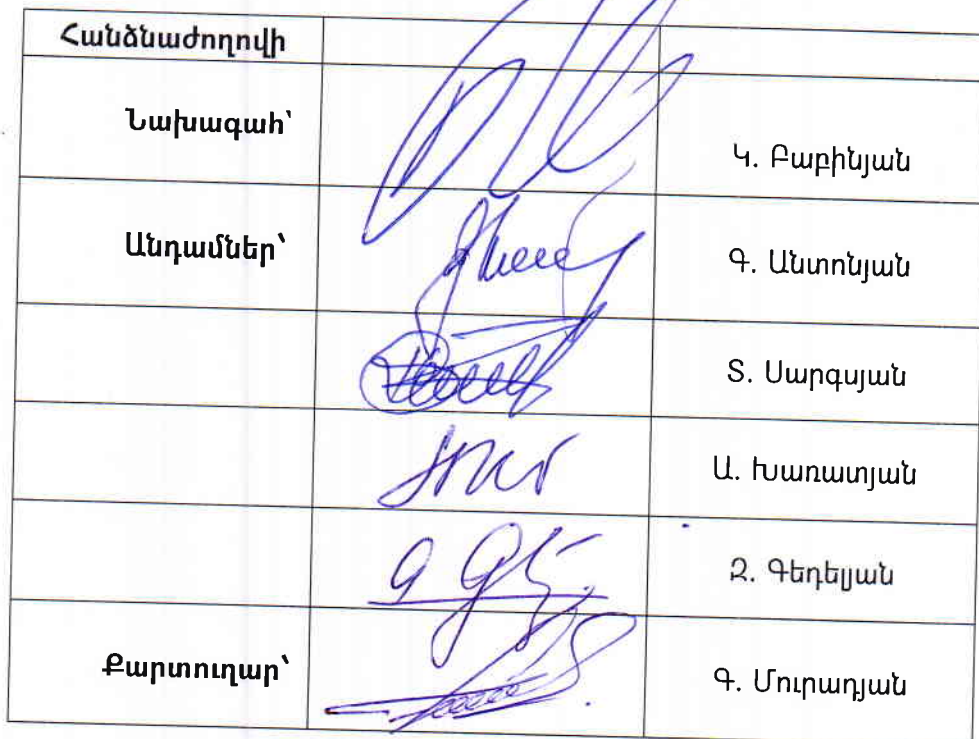 Հանձնաժողովի
Նախագահ՝
Կ. Բաբինյան
Անդամներ՝
Գ. Անտոնյան
Տ. Սարգսյան
Ա. Խառատյան
Զ. Գեդելյան
Քարտուղար՝
Գ. Մուրադյան